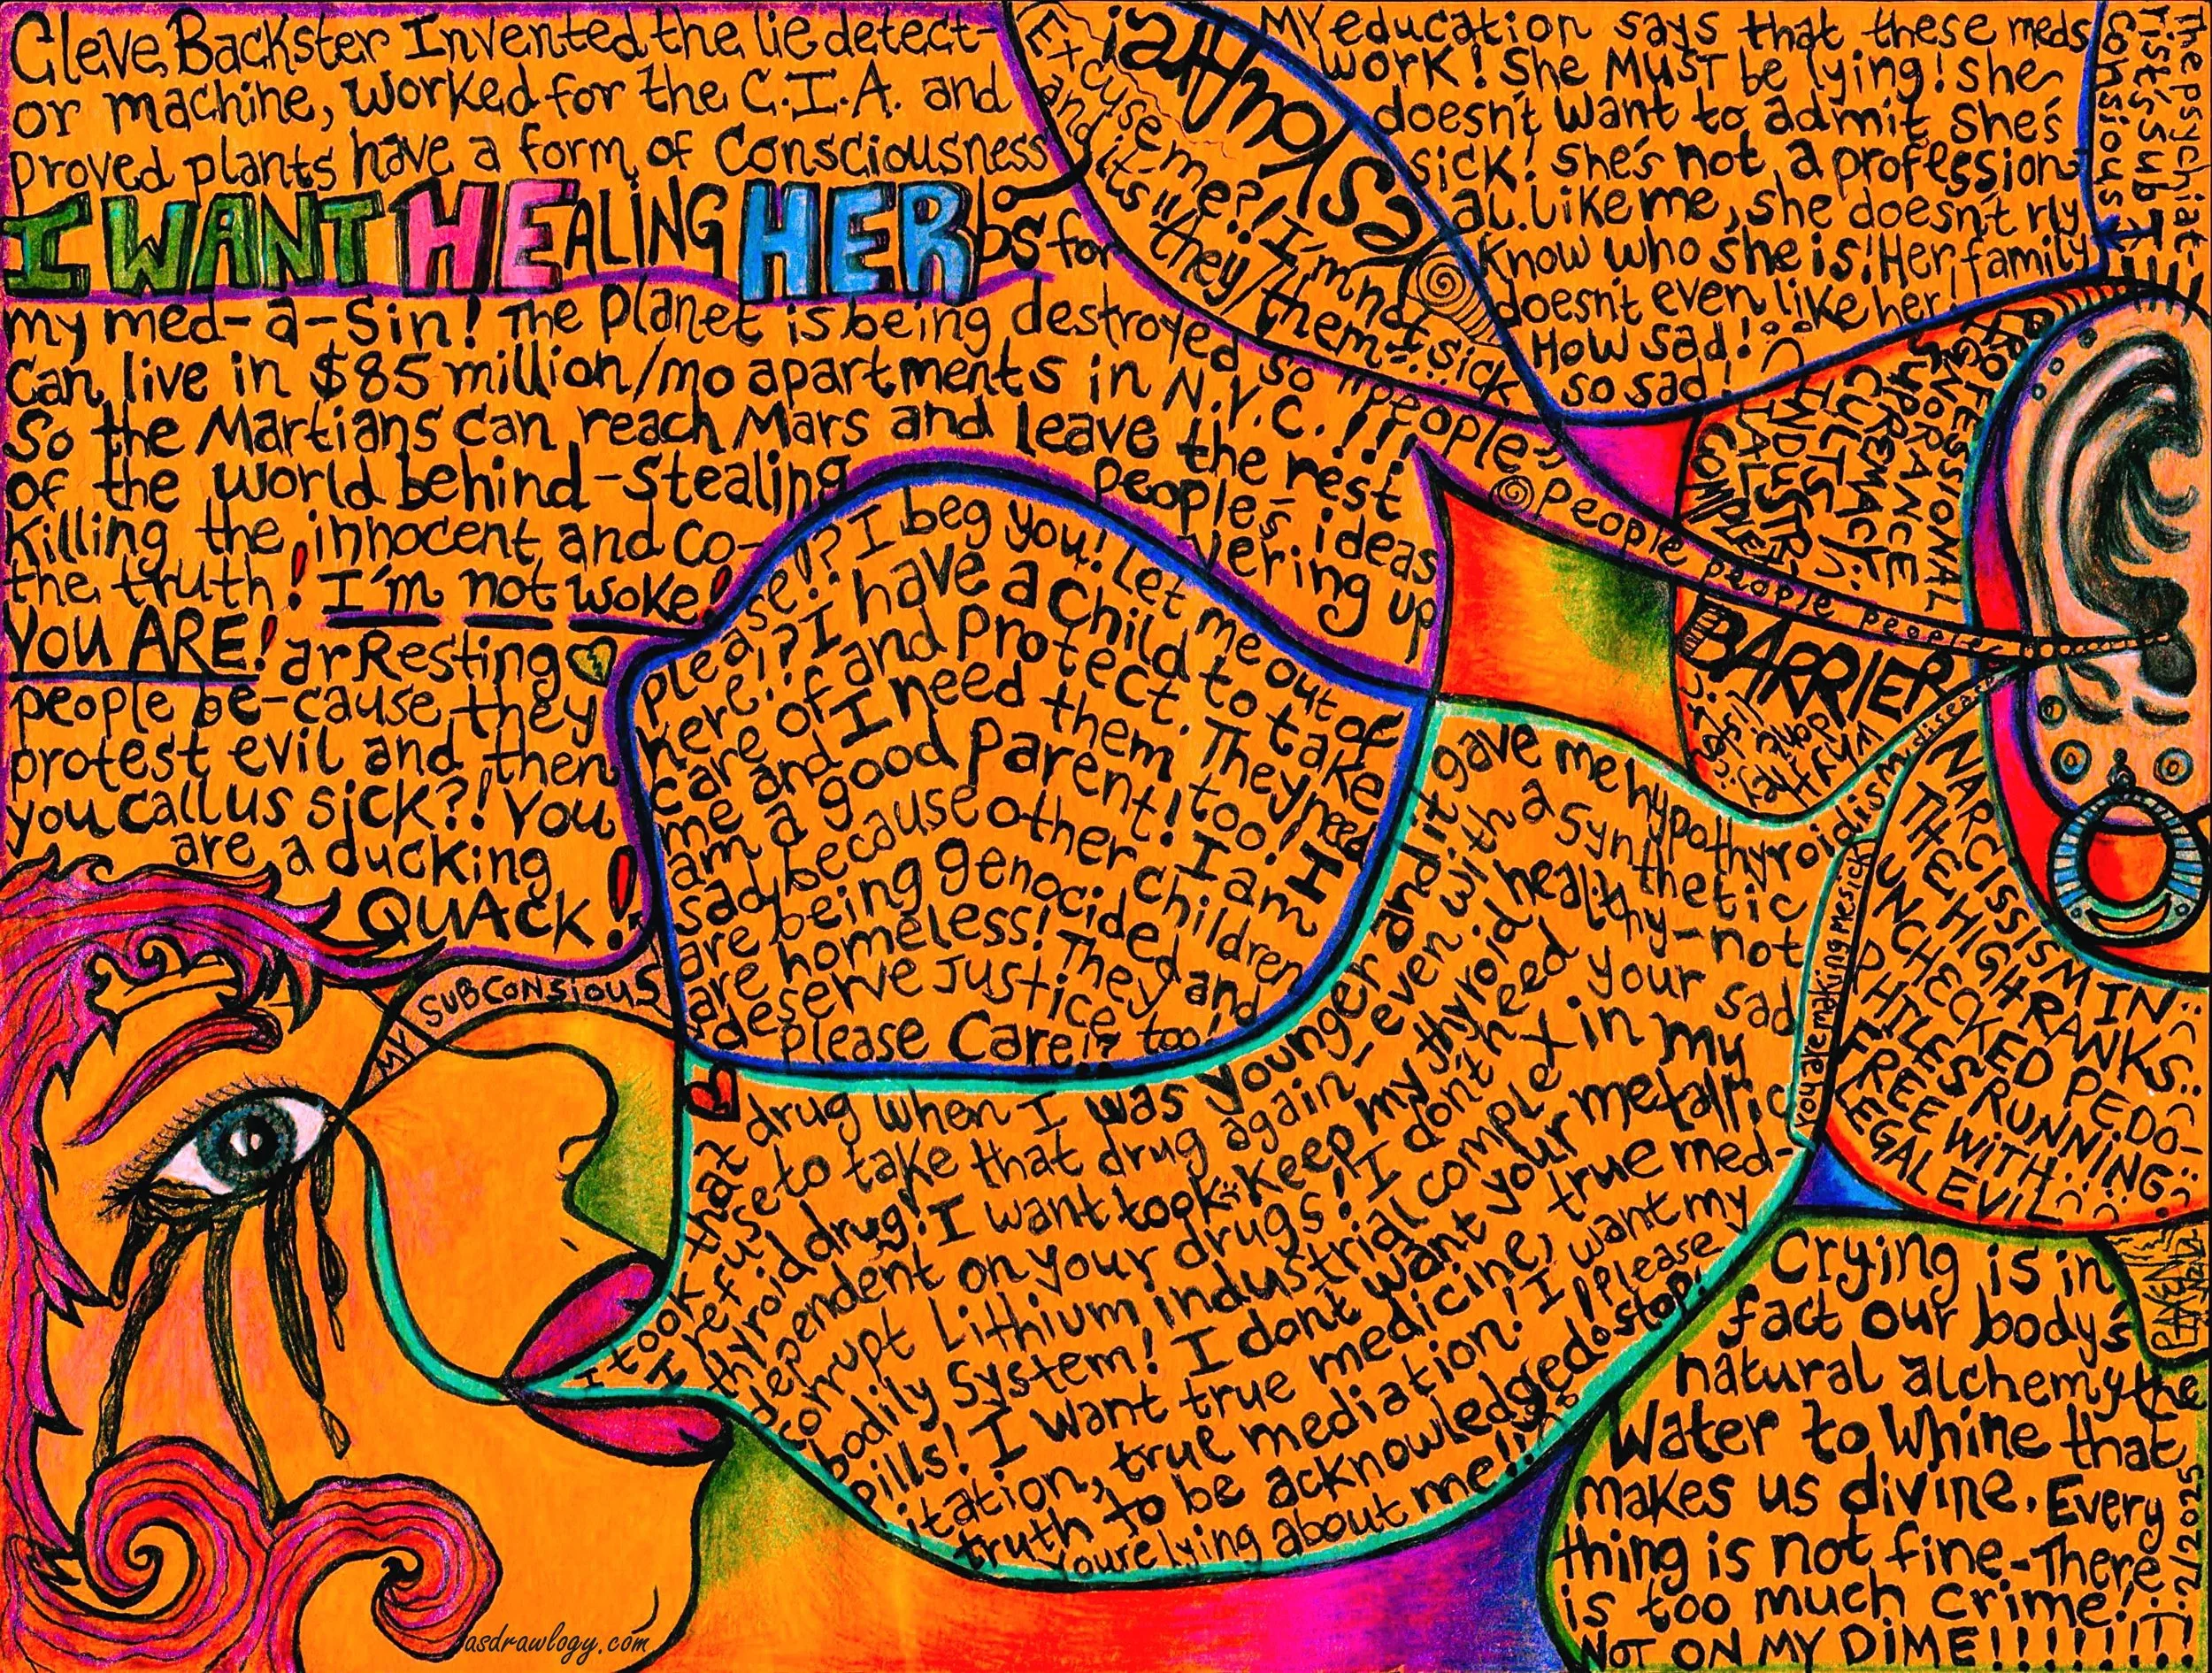 Cleve Backster Invented the lie detect-
or machine, worked for the C.I.A. and
proved plants have a form of Consciousness
I WANT HEALING HERbs for
my med-a-sin! The planet is being destroyed so "people"
Can live in $85 million/mo apartments in N.Y.C.!!!
So the Martians can reach Mars and leave the rest
of the world behind-stealing people's ideas
Killing the innocent and co-vering up
the truth! I'm not woke!
YOU ARE! arResting
people be-cause they
protest evil and then
you call us sick?! You
are a ducking
QUACK!
MY SUBCONSIOUS
please!? I beg you! Let me out of
here!? I have a child to take
care of and protect. They need
me and I need them too! I
am a good parent! I am
sad because other children
are being genocided and
are homeless! They
deserve justice too!
please care!?
I took that drug when I was younger and it gave me hypothyroidism disease
I refuse to take that drug again, even with a synthetic
thyroid drug! I want to keep my thyroid healthy-not
dependent on your drugs! I don't need your sad
corrupt Lithium industrial complex in my
bodily system! I dont want your metallic
pills! I want true medicine, true med-
itation, true mediation! I want my
truth to be acknowledged! please stop!
You're lying about me!!
Excuse me?! I'm not sick
and it's "they/them"...
people people people people people
MY education says that these meds
work! She MUST be lying! she
doesn't want to admit she's
sick! she's not a profession
al like me, she doesn't rly
know who she is! Her family
doesn't even like her!
How sad!
so sad!
The psychiat-
rist's sub
consious
PROFESSIONAL
IGNORANCE
SUPREMACY
CULTS
INDUSTRI
AL
COMPLEX
BARRIER
You are making me sick
NARCISSISM IN
THE HIGH RANKS
UNCHECKED PEDO-
PHILES RUNNING
FREE WITH
LEGAL EVIL
Crying is in
fact our body's
natural alchemy the
Water to Whine that
makes us divine. Every
thing is not fine-There
is too much crime!
NOT ON MY DIME!!!!!!!!!
2/2025
asdrawlogy.com